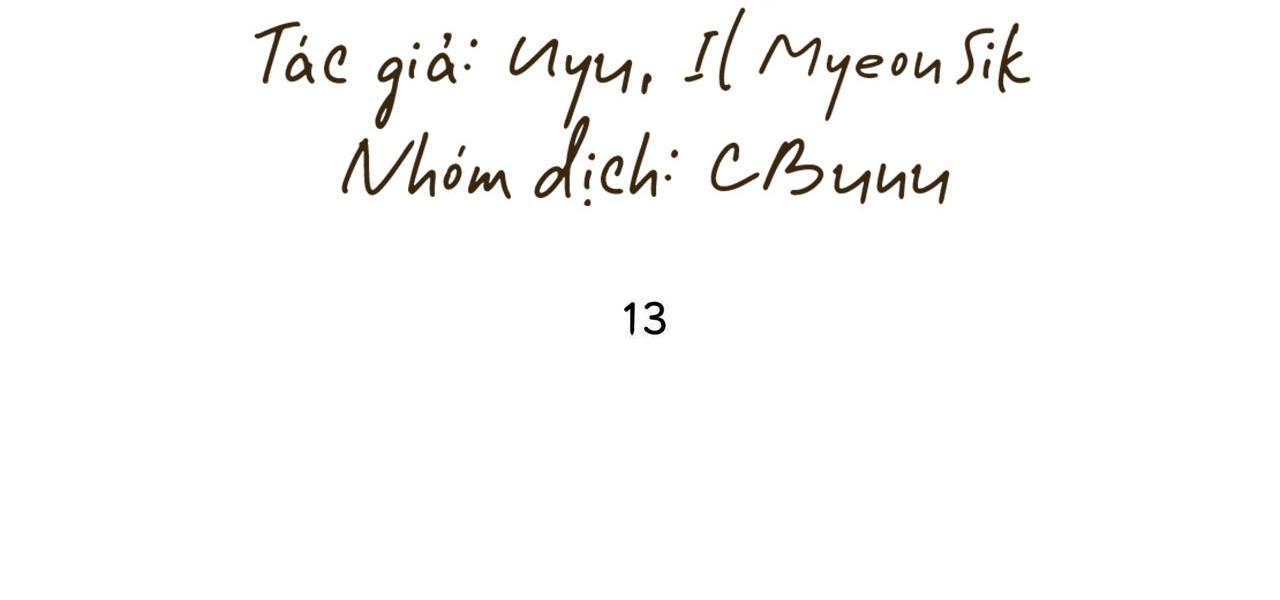 Tác giả: Uyu, Il Myeon Sik
Nhóm dịch: CBuuu
13